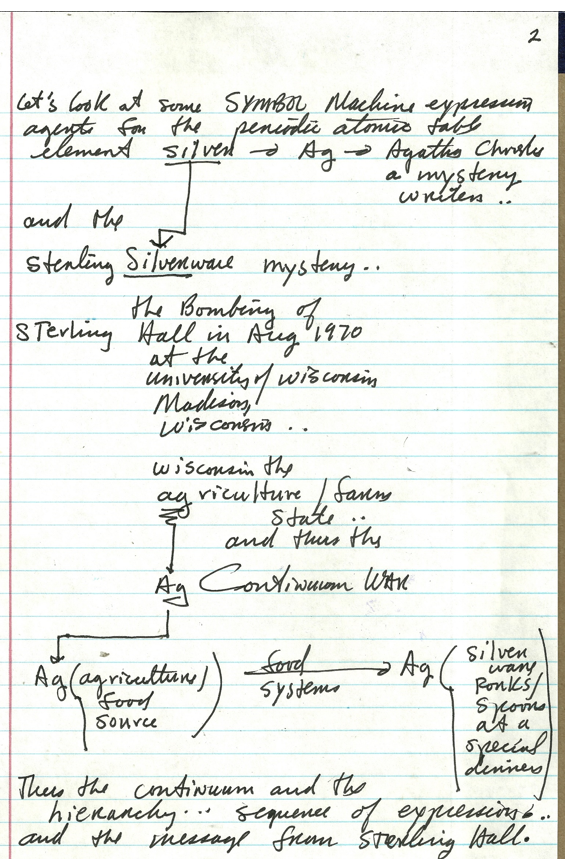 2
Let's look at some SYMBOL Machine expression
agents for the periodic atomic table
element silver → Ag → Agatha Christe
a mystery
writers ..
and the
Sterling Silverware mystery ..
the Bombing of
STerling Hall in Aug 1970
at the
university of wisconsin
Madison,
wisconsin ..
wisconsin the
agriculture / farms
state ..
and thus the
Ag Continuum WAR
Ag (agriculture/ food source) food systems → Ag (silver ware forks/ spoons at a special dinners)
Thus the continuum and the
hierarchy... sequence of expressions ..
and the message from Sterling Hall.